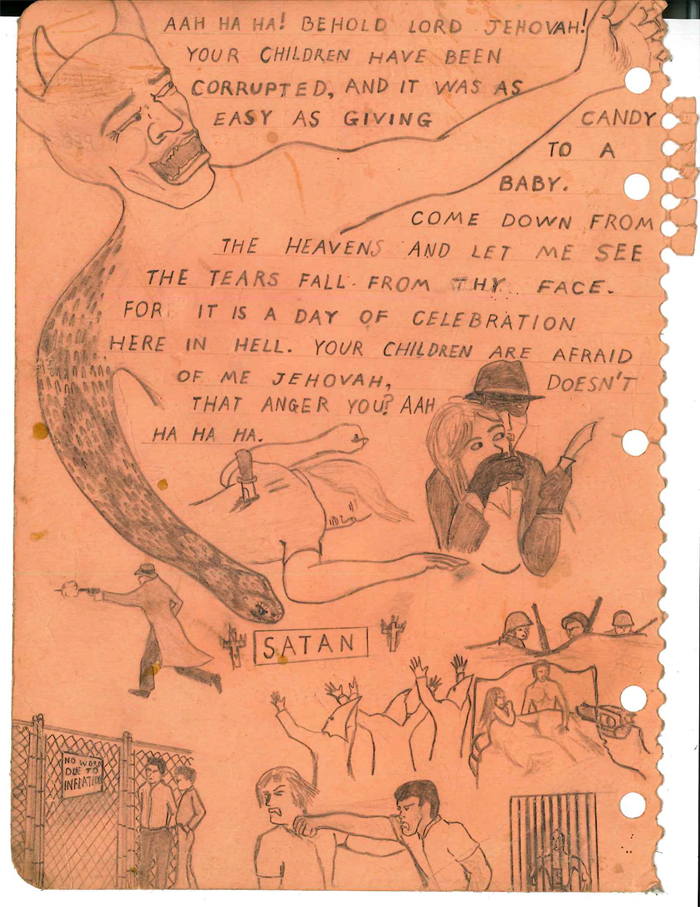 AAH HA HA! BEHOLD LORD JEHOVAH!
YOUR CHILDREN HAVE BEEN
CORRUPTED, AND IT WAS AS
EASY AS GIVING CANDY
TO A
BABY.
COME DOWN FROM
THE HEAVENS AND LET ME SEE
THE TEARS FALL FROM THY FACE.
FOR IT IS A DAY OF CELEBRATION
HERE IN HELL. YOUR CHILDREN ARE AFRAID
OF ME JEHOVAH, DOESN'T
THAT ANGER YOU? AAH
HA HA HA.
SATAN
NO WORK
DUE TO
INFLATION